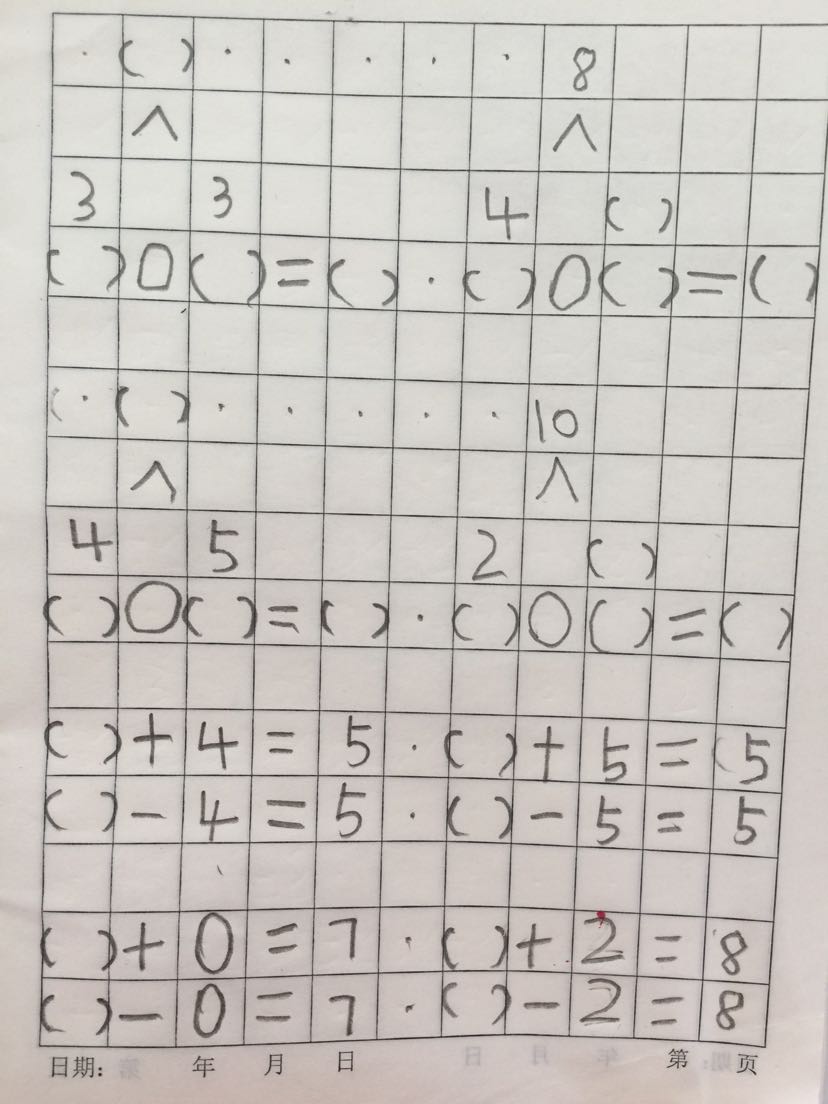 · ( ) · · · · · 8
∧ ∧
3 3 4 ( )
( ) O ( ) = ( ) · ( ) O ( ) = ( )
· ( ) · · · · · 10
∧ ∧
4 5 2 ( )
( ) O ( ) = ( ) · ( ) O ( ) = ( )
( ) + 4 = 5 · ( ) + 5 = 5
( ) - 4 = 5 · ( ) - 5 = 5
( ) + 0 = 7 · ( ) + 2 = 8
( ) - 0 = 7 · ( ) - 2 = 8
日期: 年 月 日 第 页